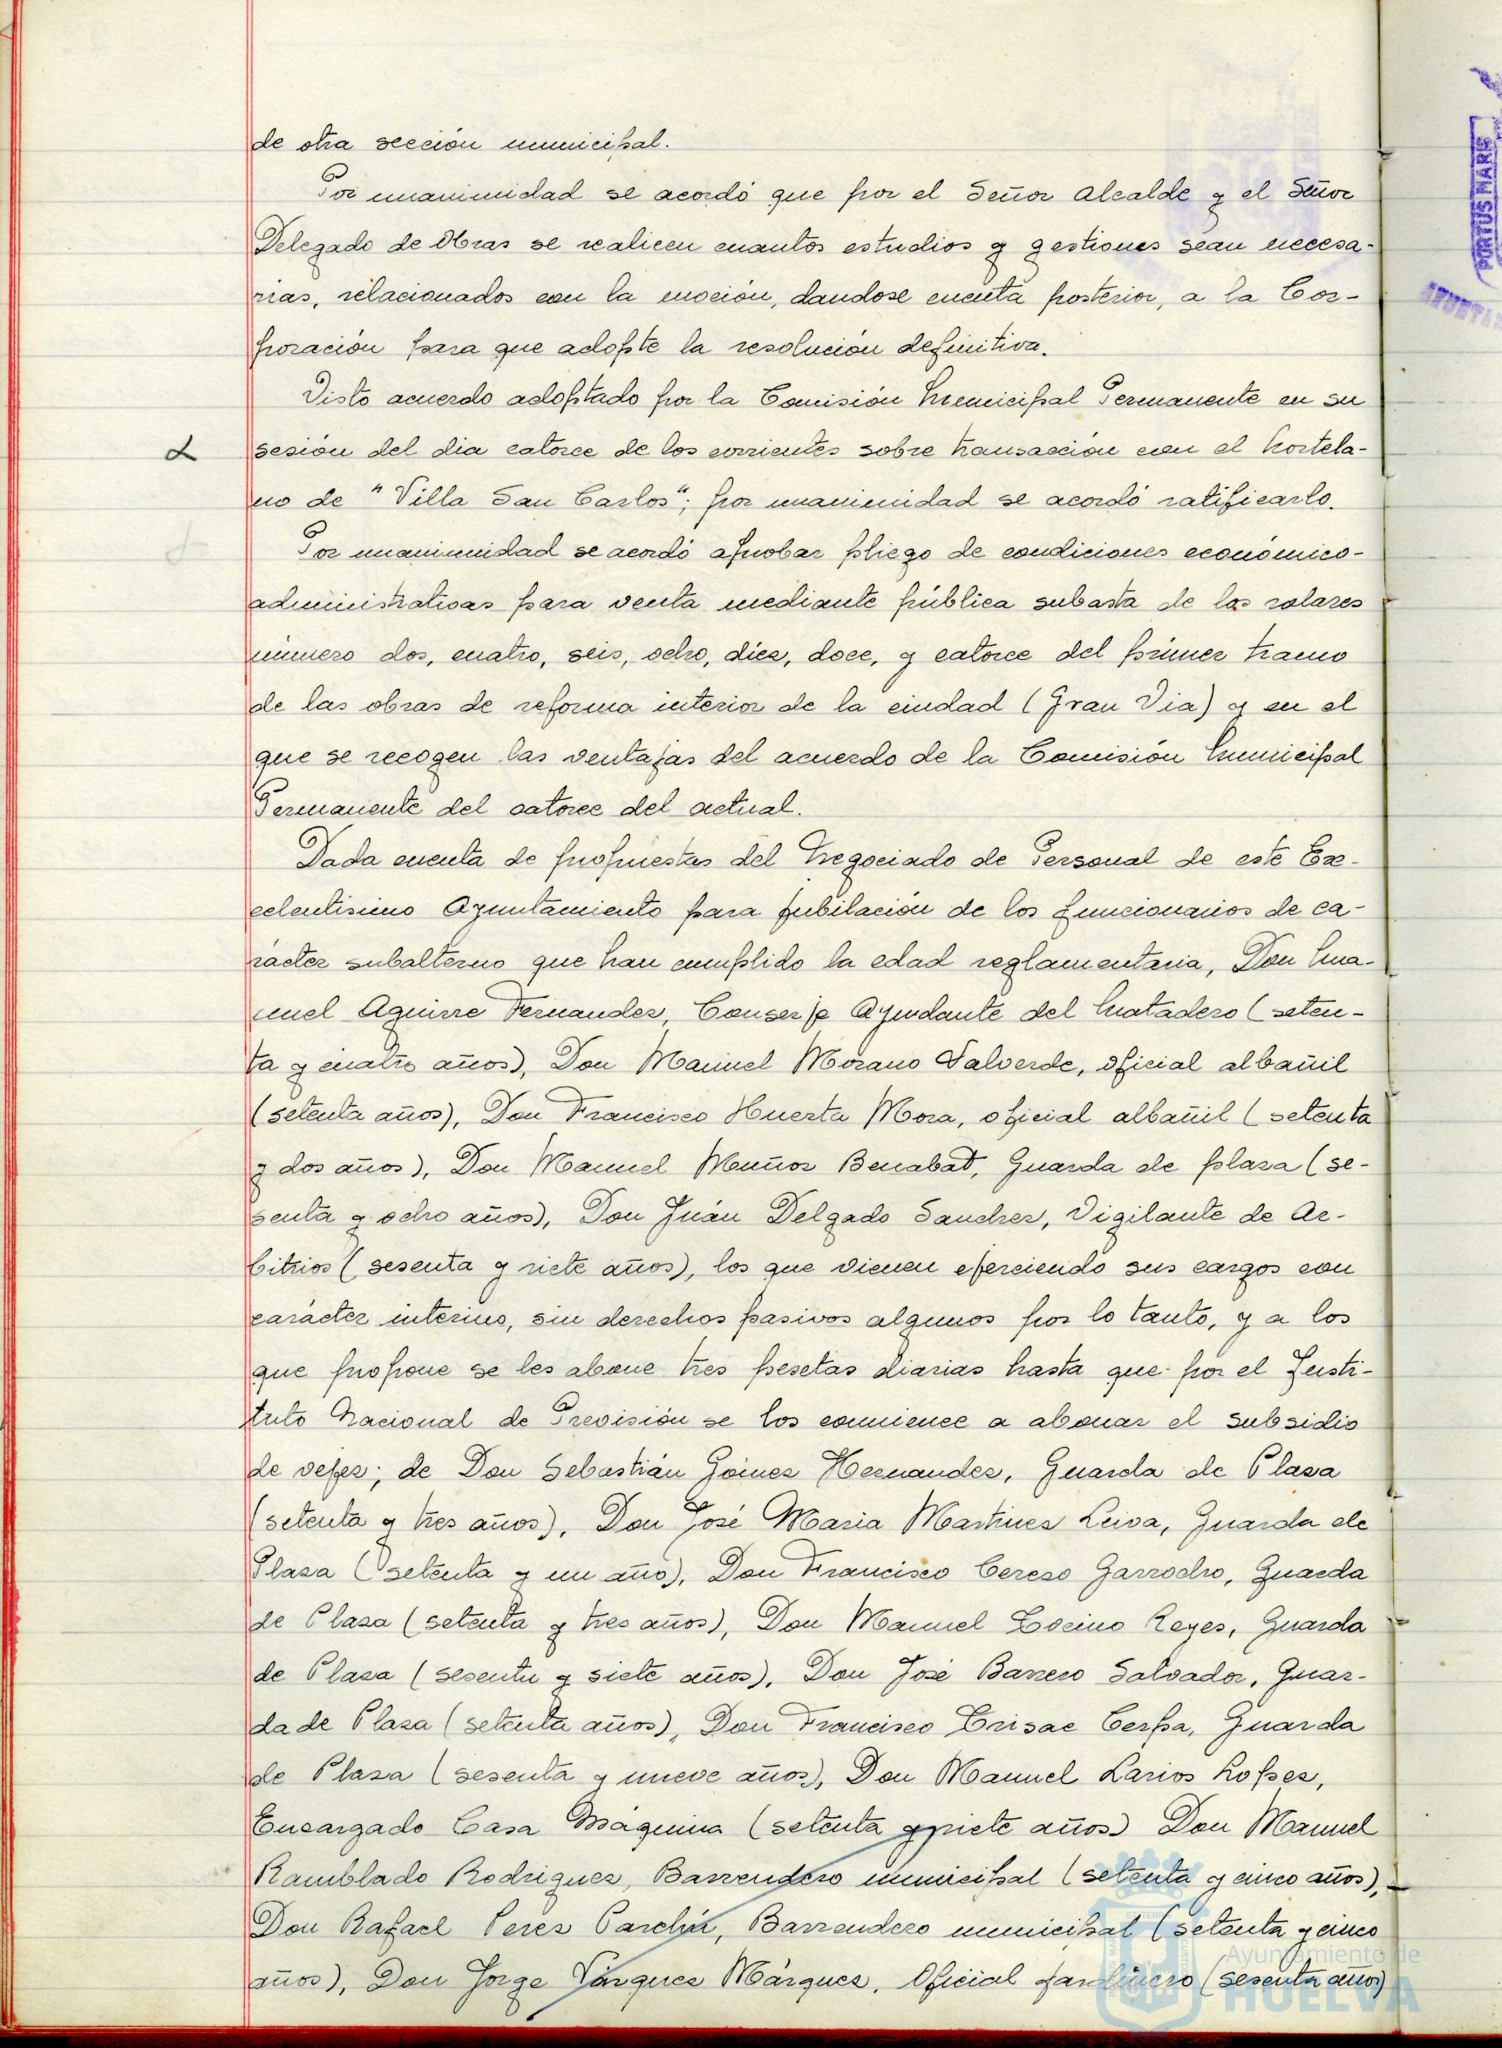 de otra sección municipal.
Por unanimidad se acordó que por el Señor Alcalde y el Señor
Delegado de Obras se realicen cuantos estudios y gestiones sean necesa-
rias, relacionados con la moción, dandose cuenta posterior, a la Cor-
poración para que adopte la resolución definitiva.
Visto acuerdo adoptado por la Comisión Municipal Permanente en su
sesión del dia catorce de los corrientes sobre transacción con el hortela-
no de "Villa San Carlos"; por unanimidad se acordó ratificarlo.
Por unanimidad se acordó aprobar pliego de condiciones económico-
administrativas para venta mediante pública subasta de los solares
número dos, cuatro, seis, ocho, diez, doce, y catorce del primer tramo
de las obras de reforma interior de la ciudad (Gran Via) y en el
que se recogen las ventajas del acuerdo de la Comisión Municipal
Permanente del catorce del actual.
Dada cuenta de propuestas del Negociado de Personal de este Ex-
celentisimo Ayuntamiento para jubilación de los funcionarios de ca-
rácter subalterno que han cumplido la edad reglamentaria, Don Ma-
nuel Aguirre Fernandez, Conserje Ayudante del Matadero (seten-
ta y cuatro años), Don Manuel Morano Valverde, oficial albañil
(setenta años), Don Francisco Huerta Mora, oficial albañil (setenta
y dos años), Don Manuel Muñoz Benabat, Guarda de plaza (se-
senta y ocho años), Don Juán Delgado Sanchez, Vigilante de Ar-
bitrios (sesenta y siete años), los que vienen ejerciendo sus cargos con
carácter interino, sin derechos pasivos algunos por lo tanto, y a los
que propone se les abone tres pesetas diarias hasta que por el Insti-
tuto Nacional de Previsión se los comience a abonar el subsidio
de vejez; de Don Sebastián Gómez Hernandez, Guarda de Plaza
(setenta y tres años), Don José Maria Martinez Leiva, Guarda de
Plaza (setenta y un año), Don Francisco Cerezo Garrocho, Guarda
de Plaza (setenta y tres años), Don Manuel Reyes, Guarda
de Plaza (sesenta y siete años), Don José Barrero Salvador, Guar-
da de Plaza (setenta años), Don Francisco Cerpa, Guarda
de Plaza (sesenta y nueve años), Don Manuel Larios Lopez,
Encargado Casa Máquina (setenta y siete años) Don Manuel
Ramblado Rodriguez, Barrendero municipal (setenta y cinco años),
Don Rafael Perez Barrendero municipal (setenta y cinco
años), Don Jorge Vázquez Márquez, Oficial jardinero (sesenta años)
PORTUS MARIS
Ayuntamiento de
HUELVA